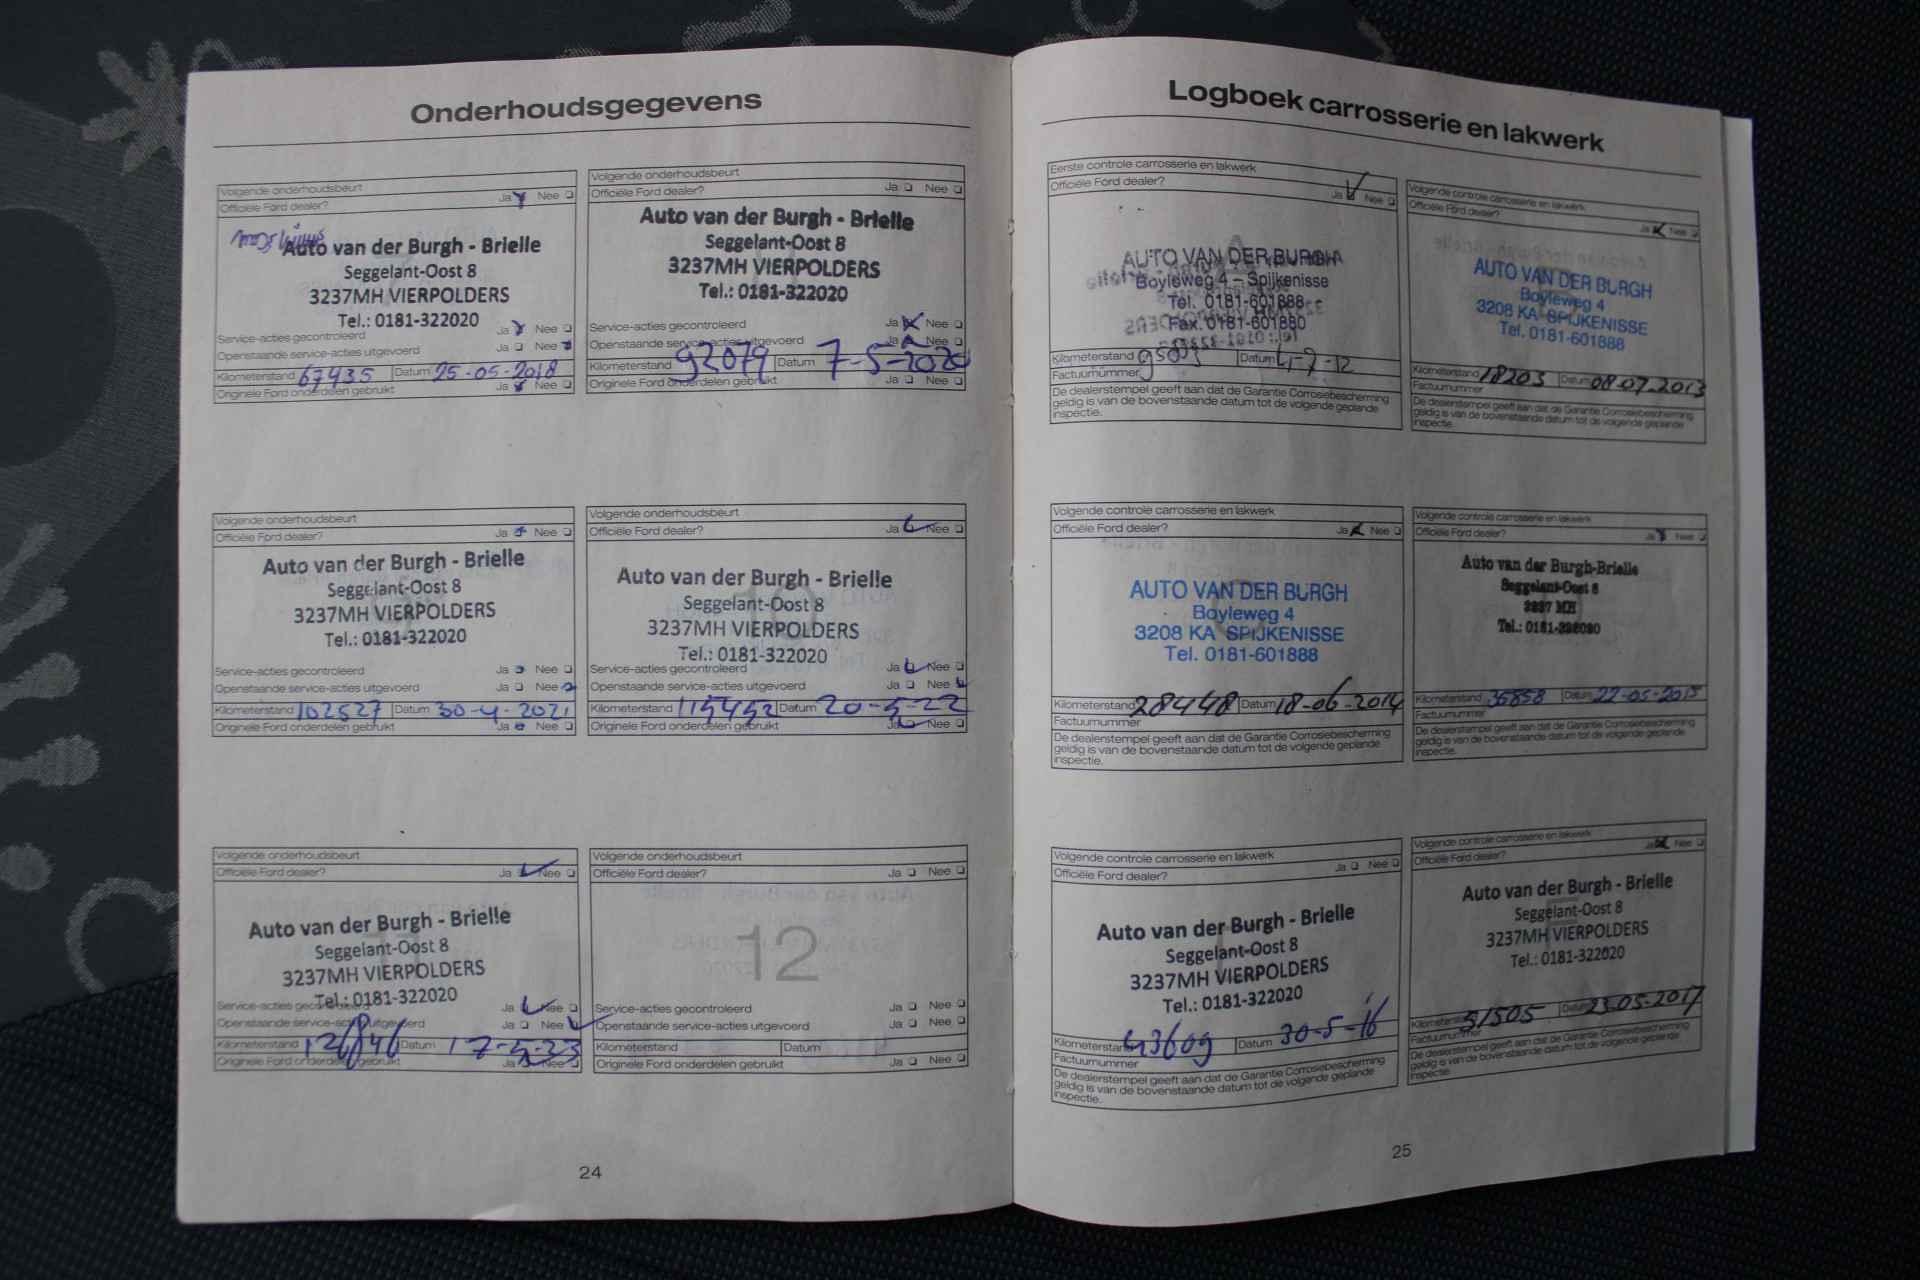 Onderhoudsgegevens
Volgende onderhoudsbeurt
Officiële Ford dealer? Ja Nee
Auto van der Burgh - Brielle
Seggelant-Oost 8
3237MH VIERPOLDERS
Tel.: 0181-322020
Service-acties gecontroleerd Ja Nee
Openstaande service-acties uitgevoerd Ja Nee
Kilometerstand 67435 Datum 25-05-2018
Originele Ford onderdelen gebruikt Ja Nee
Volgende onderhoudsbeurt
Officiële Ford dealer? Ja Nee
Auto van der Burgh - Brielle
Seggelant-Oost 8
3237MH VIERPOLDERS
Tel.: 0181-322020
Service-acties gecontroleerd Ja Nee
Openstaande service-acties uitgevoerd Ja Nee
Kilometerstand 92079 Datum 7-5-2020
Originele Ford onderdelen gebruikt Ja Nee
Volgende onderhoudsbeurt
Officiële Ford dealer? Ja Nee
Auto van der Burgh - Brielle
Seggelant-Oost 8
3237MH VIERPOLDERS
Tel.: 0181-322020
Service-acties gecontroleerd Ja Nee
Openstaande service-acties uitgevoerd Ja Nee
Kilometerstand 102527 Datum 30-4-2021
Originele Ford onderdelen gebruikt Ja Nee
Volgende onderhoudsbeurt
Officiële Ford dealer? Ja Nee
10
Auto van der Burgh - Brielle
Seggelant-Oost 8
3237MH VIERPOLDERS
Tel.: 0181-322020
Service-acties gecontroleerd Ja Nee
Openstaande service-acties uitgevoerd Ja Nee
Kilometerstand 115452 Datum 20-5-22
Originele Ford onderdelen gebruikt Ja Nee
Volgende onderhoudsbeurt
Officiële Ford dealer? Ja Nee
11
Auto van der Burgh - Brielle
Seggelant-Oost 8
3237MH VIERPOLDERS
Tel.: 0181-322020
Service-acties gecontroleerd Ja Nee
Openstaande service-acties uitgevoerd Ja Nee
Kilometerstand Datum 17-5-23
Originele Ford onderdelen gebruikt Ja Nee
Volgende onderhoudsbeurt
Officiële Ford dealer? Ja Nee
12
Service-acties gecontroleerd Ja Nee
Openstaande service-acties uitgevoerd Ja Nee
Kilometerstand Datum
Originele Ford onderdelen gebruikt Ja Nee
24
Logboek carrosserie en lakwerk
Eerste controle carrosserie en lakwerk
Officiële Ford dealer? Ja Nee
AUTO VAN DER BURGH
Boyleweg 4 – Spijkenisse
Tel. 0181-601888
Fax. 0181-601880
Kilometerstand Datum
Factuurnummer
De dealerstempel geeft aan dat de Garantie Corrosiebescherming
geldig is van de bovenstaande datum tot de volgende geplande
inspectie.
Volgende controle carrosserie en lakwerk
Officiële Ford dealer? Ja Nee
AUTO VAN DER BURGH
Boyleweg 4
3208 KA SPIJKENISSE
Tel. 0181-601888
Kilometerstand 18203 Datum 08-07-2013
Factuurnummer
De dealerstempel geeft aan dat de Garantie Corrosiebescherming
geldig is van de bovenstaande datum tot de volgende geplande
inspectie.
Volgende controle carrosserie en lakwerk
Officiële Ford dealer? Ja Nee
AUTO VAN DER BURGH
Boyleweg 4
3208 KA SPIJKENISSE
Tel. 0181-601888
Kilometerstand 28448 Datum 18-06-2014
Factuurnummer
De dealerstempel geeft aan dat de Garantie Corrosiebescherming
geldig is van de bovenstaande datum tot de volgende geplande
inspectie.
Volgende controle carrosserie en lakwerk
Officiële Ford dealer? Ja Nee
Auto van der Burgh-Brielle
Seggelant-Oost 8
3237 MH
Tel.: 0181-322020
Kilometerstand 36858 Datum 22-05-2015
Factuurnummer
De dealerstempel geeft aan dat de Garantie Corrosiebescherming
geldig is van de bovenstaande datum tot de volgende geplande
inspectie.
Volgende controle carrosserie en lakwerk
Officiële Ford dealer? Ja Nee
Auto van der Burgh - Brielle
Seggelant-Oost 8
3237MH VIERPOLDERS
Tel.: 0181-322020
Kilometerstand 43609 Datum 30-5-16
Factuurnummer
De dealerstempel geeft aan dat de Garantie Corrosiebescherming
geldig is van de bovenstaande datum tot de volgende geplande
inspectie.
Volgende controle carrosserie en lakwerk
Officiële Ford dealer? Ja Nee
Auto van der Burgh - Brielle
Seggelant-Oost 8
3237MH VIERPOLDERS
Tel.: 0181-322020
Kilometerstand 51505 Datum 23-05-2017
Factuurnummer
De dealerstempel geeft aan dat de Garantie Corrosiebescherming
geldig is van de bovenstaande datum tot de volgende geplande
inspectie.
25